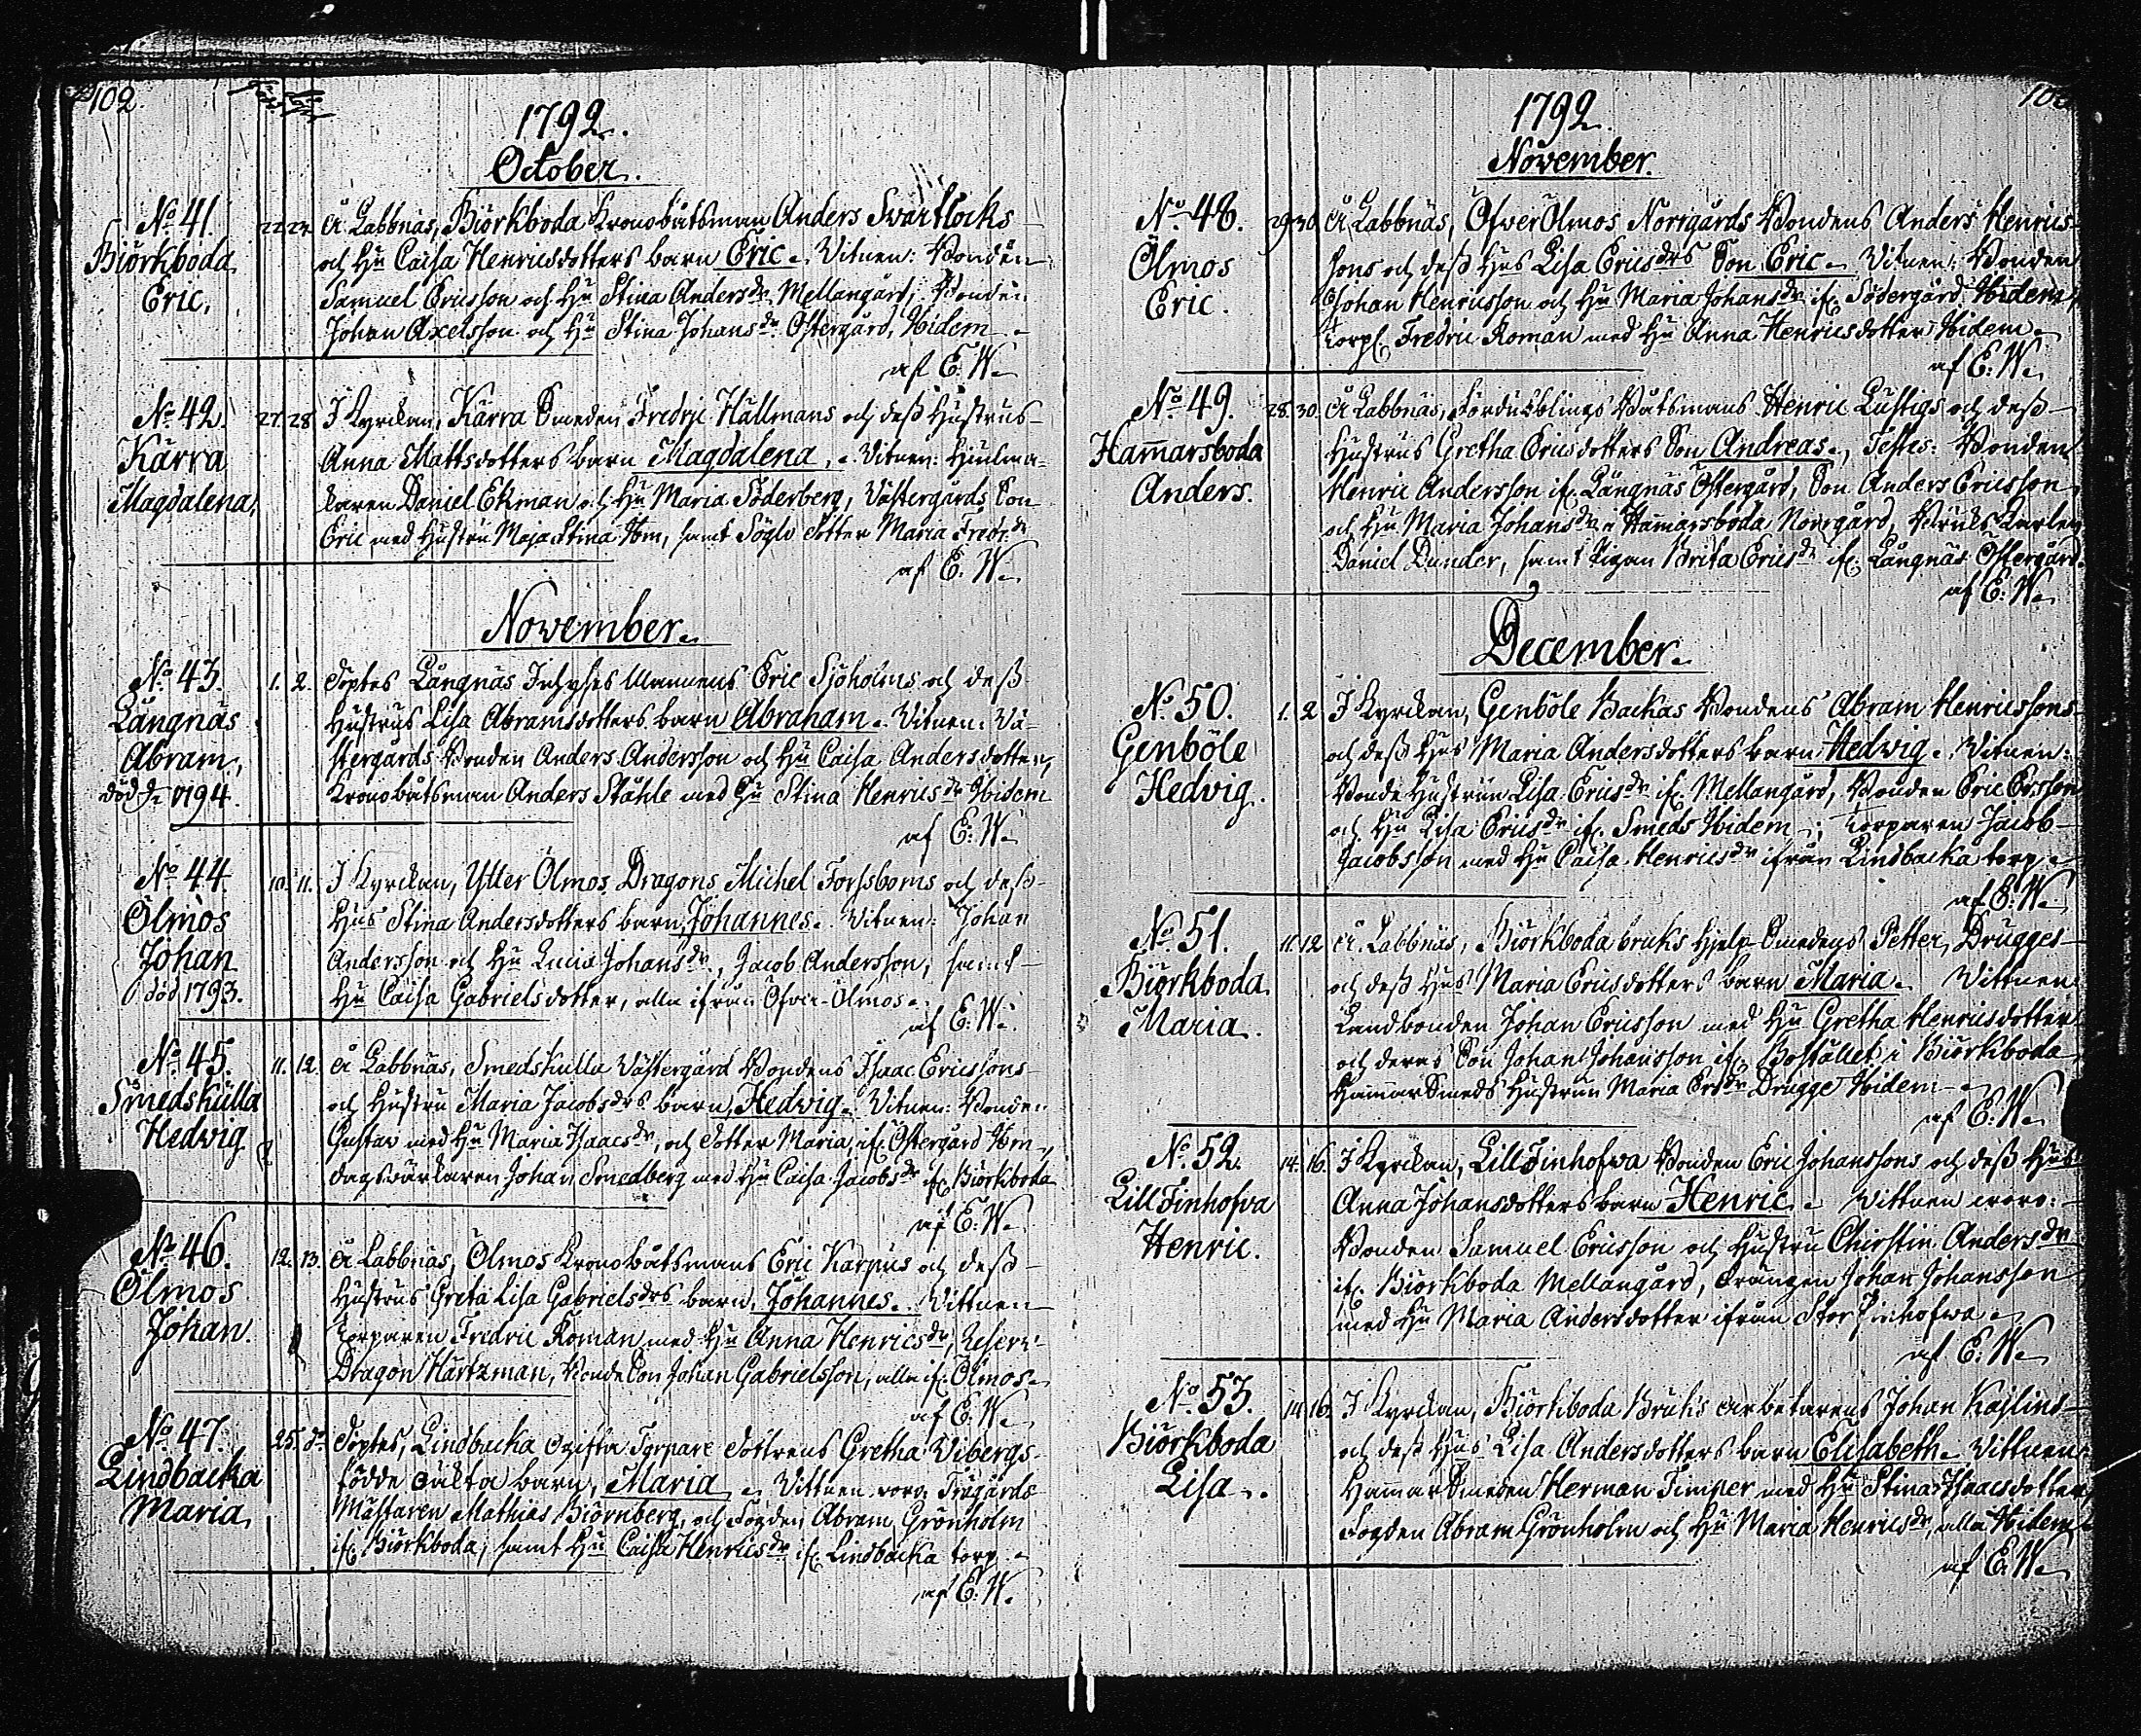 102.
1792.
October.
No. 41.
Biörkboda
Eric.
22. 24. å Labbnäs, Biörkboda Kronobåtsman Anders Swartlocks
och Hu Caisa Henricsdotters barn Eric. Vitnen: Bonden
Samuel Ericsson och Hu Stina Andersdr Mellangård, Bonden
Johan Axelsson och Hu Stina Johansdr Östergård, Ibidem.
af E. W.
No. 42.
Kärra
Magdalena.
27. 28. I Kyrckan, Kärra Smeden Fredric Hällmans och dess Hustrus
Anna Mattsdotters barn Magdalena. Vitnen: Hiulma-
karen Daniel Ekman och Hu Maria Söderberg, Västergårds Son
Eric med Hustru Maja Stina Ibm, samt Dotter Maria Fredr. dr
af E. W.
November.
No. 43.
Långnäs
Abram,
död 1794.
1. 2. Döptes Långnäs Inhyses Mannens Eric Sjöholms och dess
Hustrus Lisa Abramsdotters barn Abraham. Vitnen: Vä-
stergårds Bonden Anders Andersson och Hu Caisa Andersdotter,
Kronobåtsman Anders Ståhle med Hu Stina Henricsdr Ibidem
af E. W.
No. 44
Ölmos
Johan
död 1793.
10. 11. I Kyrckan, Ytter Ölmos Dragons Michel Forssboms och dess
Hus Stina Andersdotters barn Johannes. Vitnen: Johan
Andersson och Hu Lucia Johansdr, Jacob Andersson, samt
Hu Caisa Gabrielsdotter, alla ifrån Öfver-Ölmos.
af E. W.
No. 45.
Smedskulla
Hedvig
11. 12. å Labbnäs, Smedskulla Västergård Bondens Isaac Ericssons
och Hustru Maria Jacobsdrs barn Hedvig. Vitnen: Bonden
Gustav med Hu Maria Isaacsdr, och Dotter Maria, if. Östergård Ibm,
dagsvärkaren Johan Smedberg med Hu Caisa Jacobsdr if. Biörkboda
af E. W.
No. 46.
Ölmos
Johan.
12. 13. å Labbnäs, Ölmos Kronobåtsmans Eric Karpus och dess
Hustrus Greta Lisa Gabrielsdrs barn, Johannes. Vittnen
Torparen Fredric Roman med Hu Anna Henricsdr, Reserv-
Dragon Hartzman, Bonde Son Johan Gabrielsson, alla if. Ölmos.
af E. W.
No. 47.
Lindbacka
Maria.
25. do Döptes, Lindbacka ogifta Torpare Dottrens Gretha Vibergs
födde oäkta barn, Maria. Vittnen voro Trägårds
Mästaren Mathias Biörnberg, och Fogden Abram Grönholm
if. Biörkboda, samt Hu Caisa Henricsdr if. Lindbacka torp.
af E. W.
1792.
November.
No. 48.
Ölmos
Eric.
29. 30. å Labbnäs, Öfwer Ölmos Norrgårds Bondens Anders Henrics-
sons och dess Hus Lisa Ericsdrs Son Eric. Vitnen: Bonden
Johan Henricsson och Hu Maria Johansdr if. Södergård Ibidem,
Torp. Fredric Roman med Hu Anna Henricsdotter Ibidem.
af E. W.
No. 49.
Hamarsboda
Anders.
28. 30. å Labbnäs, Båtsmans Henric Lustigs och dess
Hustrus Gretha Ericsdotters Son Andreas. Testes: Bonden
Henric Andersson if. Långnäs Östergård, Son Anders Ericsson
och Hu Maria Johansdr Hamarsboda Norrgård, Bruks Karlen
Daniel Dunder, samt Pigan Brita Ericsdr if. Långnäs Östergård.
af E. W.
December.
No. 50.
Genböle
Hedvig.
1. 2 I Kyrckan, Genböle Backas Bondens Abram Henricssons
och dess Hus Maria Andersdotters barn Hedwig. Vitnen:
Bonde Hustrun Lisa Ericsdr if. Mellangård, Bonden Eric Ersson
och Hu Lisa Ericsdr if. Smeds Ibidem, Torparen Jacob
Jacobsson med Hu Caisa Henricsdr ifrån Lindbacka torp.
af E. W.
No. 51.
Biörkboda
Maria.
11. 12 å Labbnäs, Biörkboda bruks Hjelp Smedens Petter Drugges
och dess Hus Maria Ericsdotters barn Maria. Vittnen
Landbonden Johan Ericsson med Hu Gretha Henricsdotter
och deras Son Johan Johansson if. Bostället i Biörkboda
Hamar Smeds Hustrun Maria Ersdr Drugge Ibidem.
af E. W.
No. 52.
Lill Finhofva
Henric.
14. 16. I Kyrckan, Lill Finhofwa Bonden Eric Johanssons och dess Hus
Anna Johansdotters barn Henric. Vittnen woro:
Bonden Samuel Ericsson och Hustru Chirstin Andersdr
if. Biörkboda Mellangård, Drängen Johan Johansson
med Hu Maria Andersdotter ifrån Stor Finhofwa.
af E. W.
No. 53.
Biörkboda
Lisa.
14. 16. I Kyrckan, Biörkboda Bruks arbetarens Johan Kajlins
och dess Hus Lisa Andersdotters barn Elisabeth. Vittnen
Hamar Smeden Herman Timper med Hu Stina Isaacsdotter,
Fogden Abram Grönholm och Hu Maria Henricsdr, alla Ibidem.
af E. W.